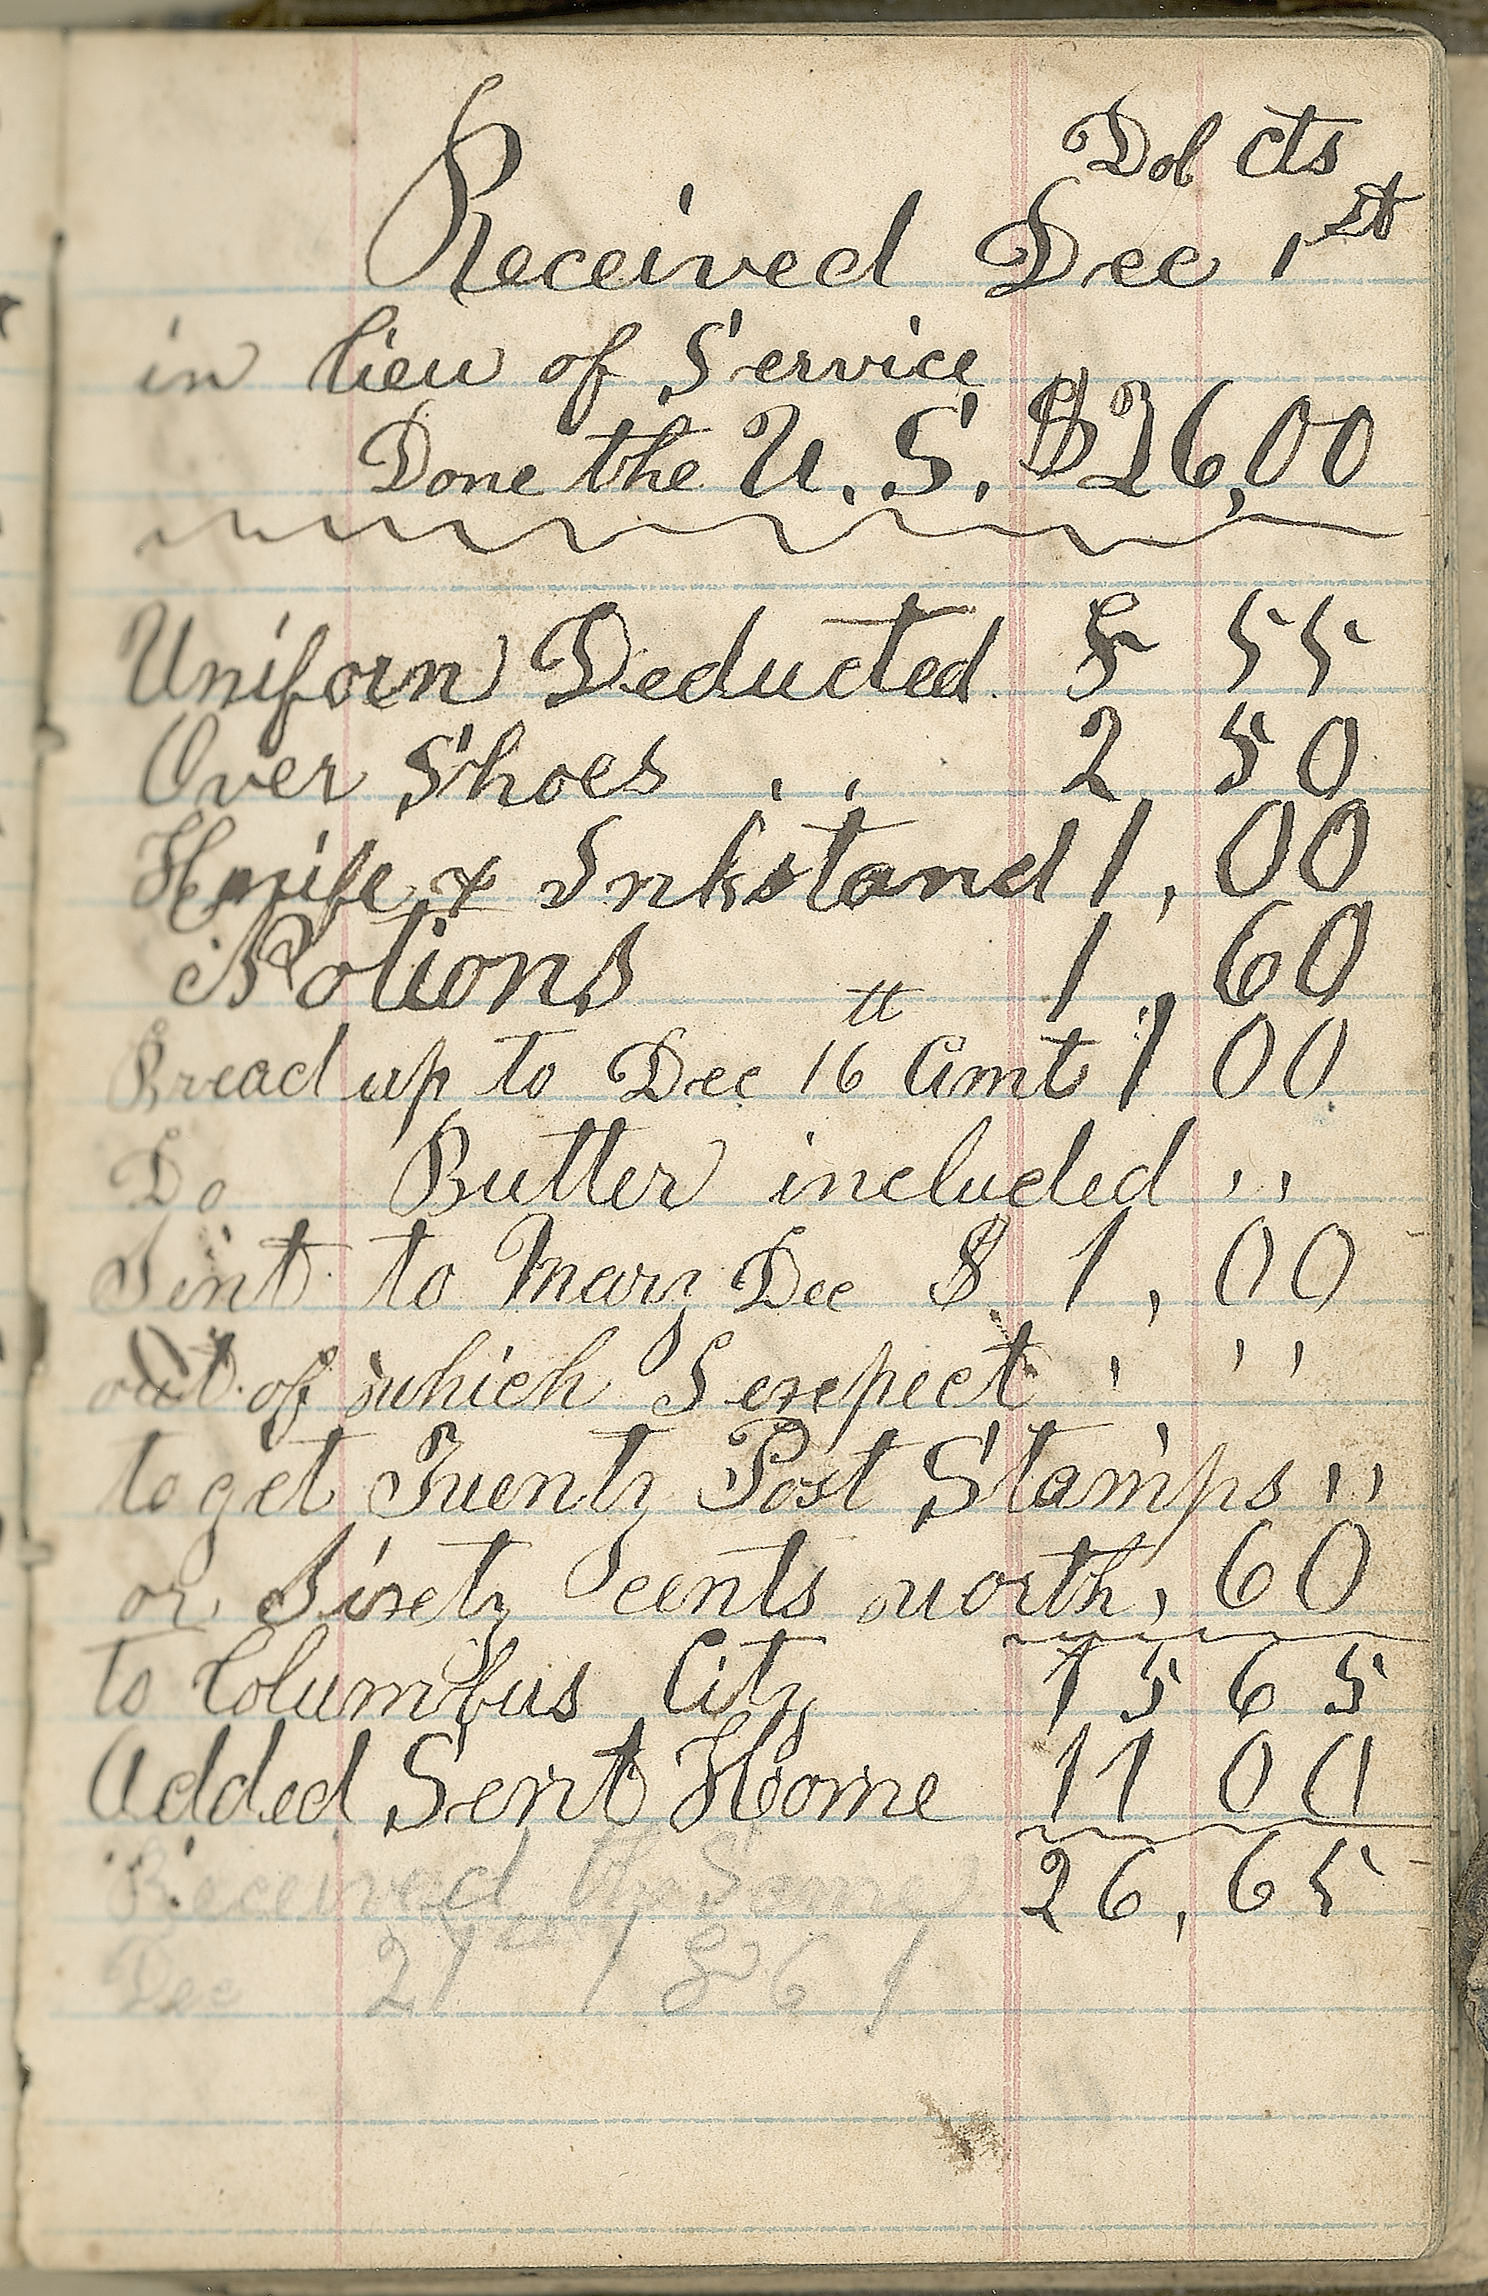 Dol cts
Received Dec 1st
in lieu of Service
Done the U. S. $26,00
Uniform Deducted 8 55
Over Shoes , , 2 50
Knife & Inkstand 1, 00
Notions " 1, 60
Bread up to Dec 16 Amt 1 00
Do Butter included ,,
Sent to Mary Dec $ 1, 00
out of which I expect , ,,
to get Twenty Post Stamps ,,
or Sixty cents worth, 60
to Columbus City 15 65
Added Sent Home 11 00
Received the Same 26, 65
Dec 21 1861